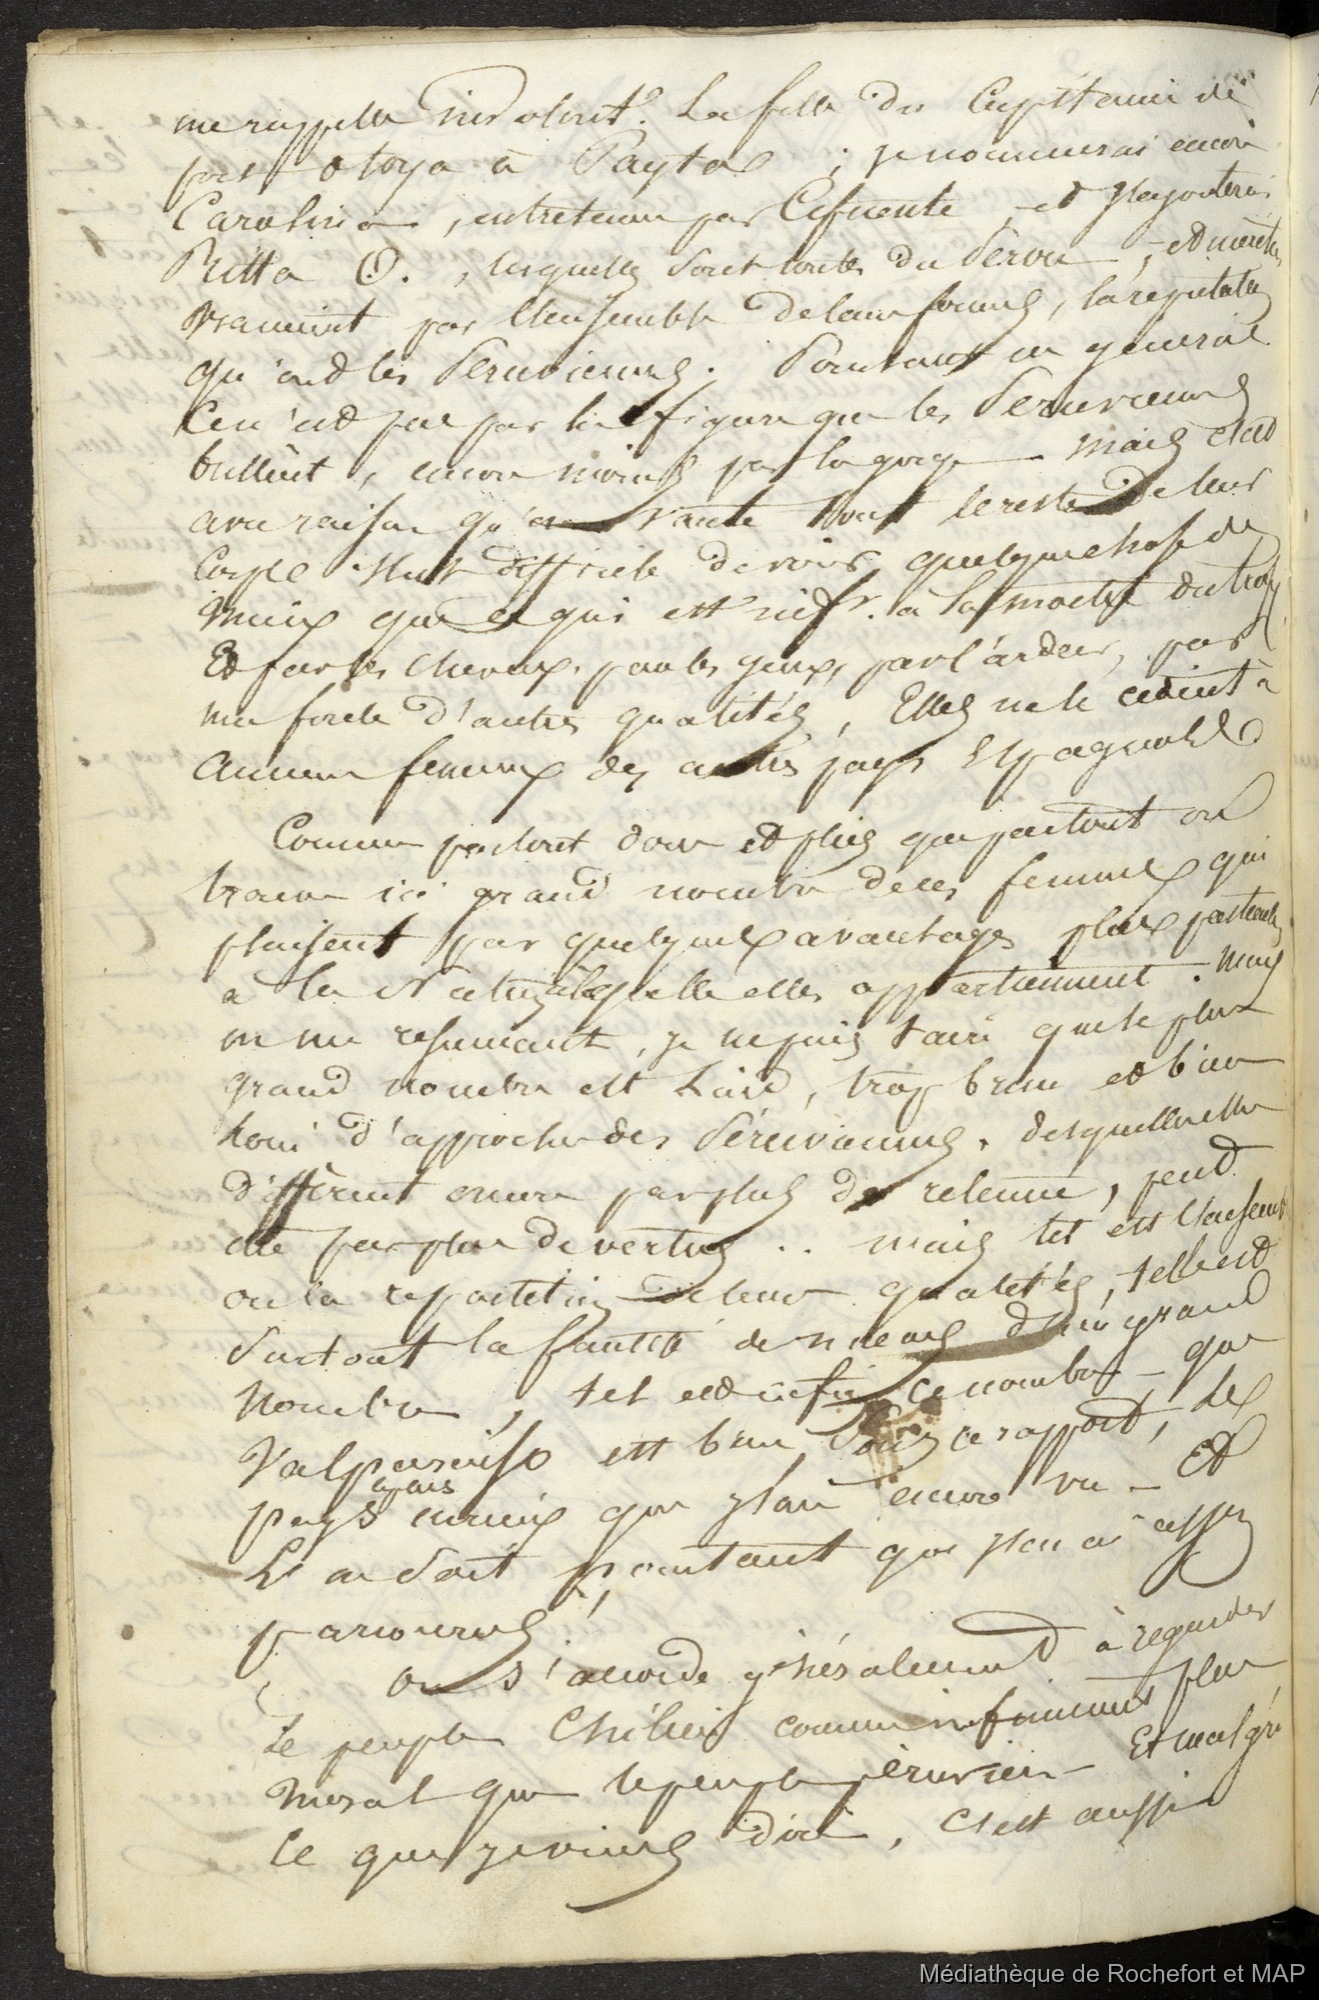 me rappelle La fille du Capitaine de
port Otoya à Payta ; je nommerai encore
Carolina , entretenue par Cifuente , et j'ajouterai
Ritta O. , lesquelles sont toutes du Pérou , et
vraiment par l'ensemble de leurs formes, la reputation
qu'ont les Peruviennes. Pourtant en general
Ce n'est pas par la figure que les Peruviennes
brillent , encore moins par la gorge mais c'est
avec raison qu'on vante tout le reste de leur
Corps Il est difficile de voir quelque chose de
mieux que ce qui est à la moitié du
Et par les cheveux, par les yeux, par l'ardeur, par
une foule d'autres qualités , Elles ne le cedent à
aucune femme des autres pays Espagnols
Comme partout donc et plus que partout on
trouve ici grand nombre de ces femmes qui
plaisent par quelques avantages plus
à la Nation à laquelle elles appartiennent . Mais
en me resumant , je ne puis taire que le plus
grand nombre est laid , trop brun et bien
loin d'approcher des Péruviennes . desquelles elles
diffèrent encore par plus de retenue , peut
être par plus de vertus .. mais tel est l'ensemble
ou la repartition de leurs qualités , telle est
surtout la de d'un grand
Nombre , tel est enfin ce nombre que
Valparaiso est bien, sous ce rapport, le
pays que j'aie encore vu - Et
Dieu sait pourtant que j'en ai assez
parcourus
On s'accorde généralement à regarder
le peuple Chilien comme infiniment plus
moral que le peuple péruvien - Et malgré
Ce que je viens dire , c'est aussi
Médiathèque de Rochefort et MAP